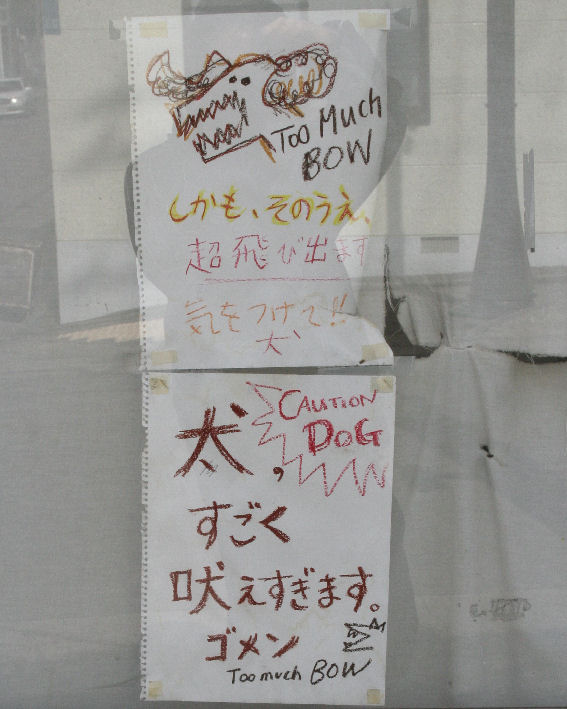 Too Much
BOW
しかも、そのうえ、
超飛び出ます
気をつけて!!
犬
CAUTION
DOG
犬,
すごく
吠えすぎます。
ゴメン
Too much BOW